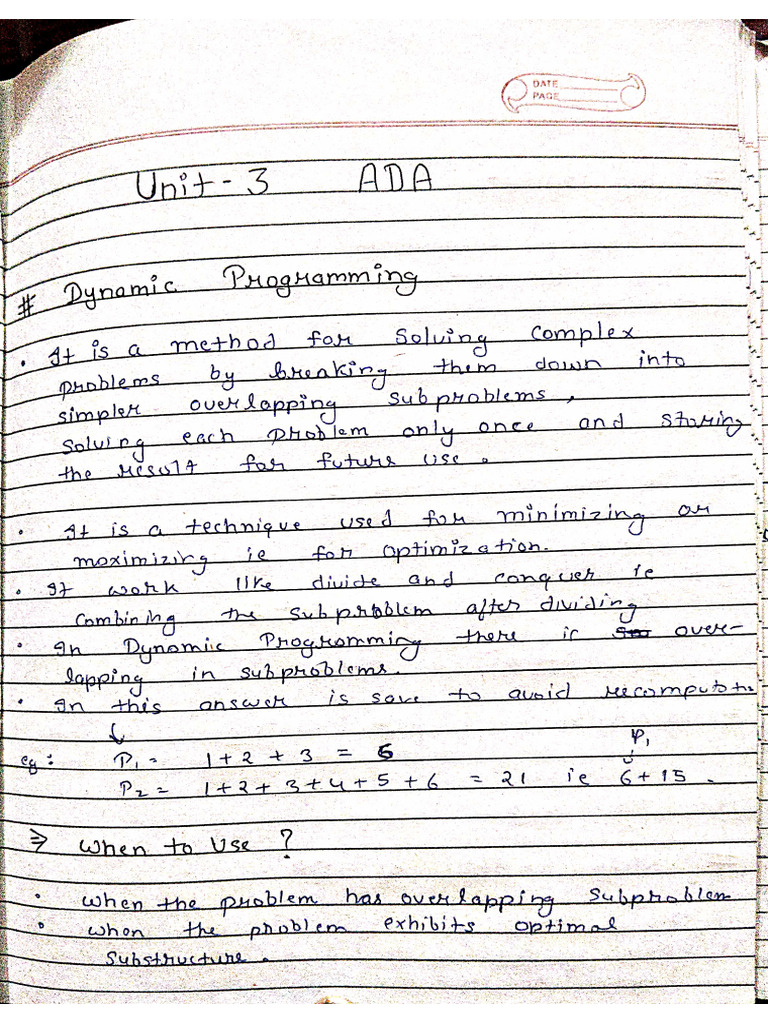 DATE
PAGE
Unit - 3 ADA
# Dynamic Programming
• It is a method for solving complex
problems by breaking them down into
simpler overlapping subproblems,
solving each problem only once and storing
the result for future use.
• It is a technique used for minimizing or
maximizing ie for optimization.
• It work like divide and conquer ie
combining the subproblem after dividing
• In Dynamic Programming there is over-
lapping in subproblems.
• In this answer is save to avoid
eg: P1 = 1 + 2 + 3 = 6
P1
P2 = 1 + 2 + 3 + 4 + 5 + 6 = 21 ie 6 + 15.
⇒ When to Use ?
• When the problem has overlapping subproblem
• When the problem exhibits optimal
substructure.